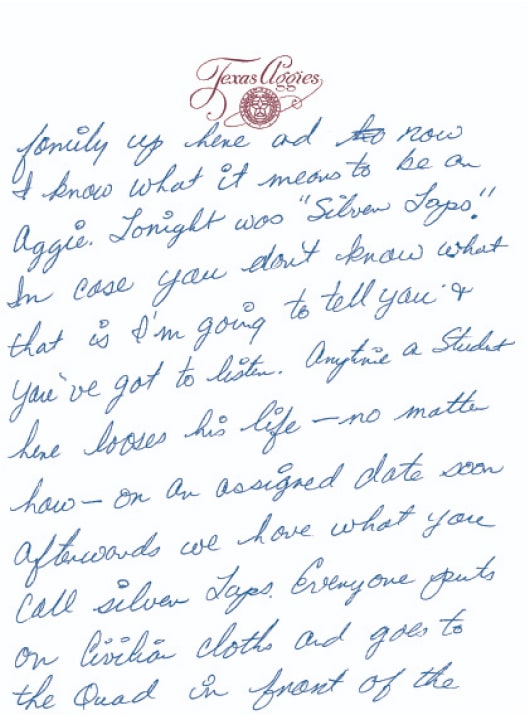 Texas Aggies
family up here ad to now
I know what it means to be an
Aggie. Tonight was "Silver Taps."
In case you don't know what
that is I'm going to tell you &
you've got to listen. Anytime a Student
here looses his life — no matter
how — on an assigned date soon
afterwards we have what you
call silver Taps. Everyone puts
on Civilian cloths and goes to
the Quad in front of the